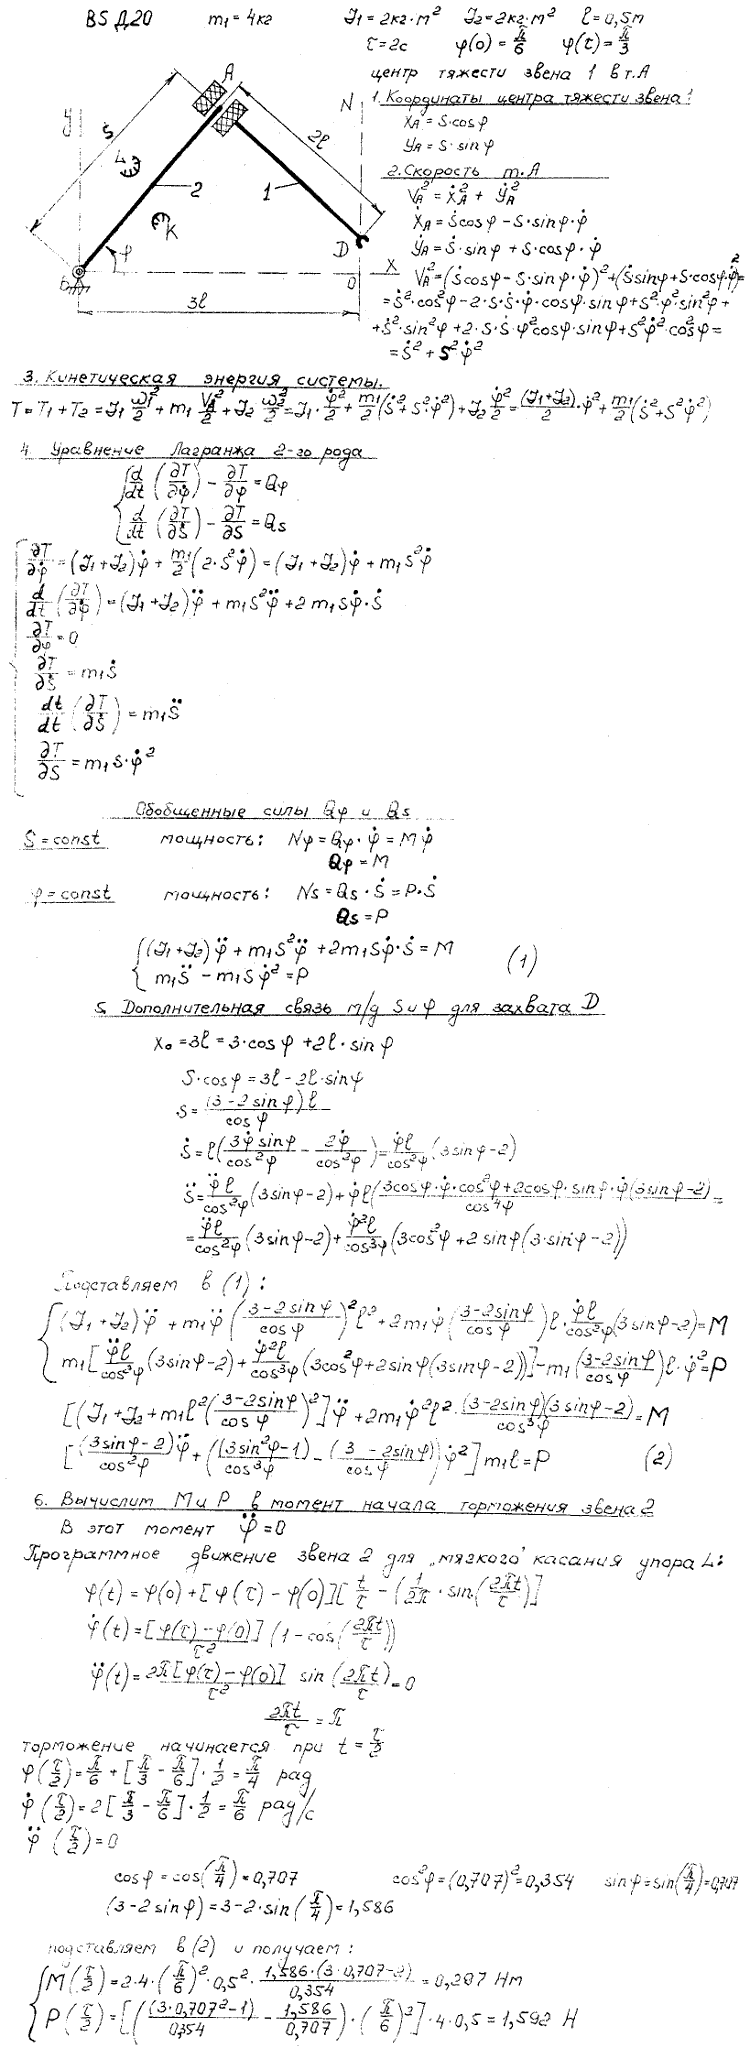 BS Д20 m₁=4кг J₁=2кг·м² J₂=2кг·м² l=0,5м
τ=2с φ(0)=π/6 φ(τ)=π/3
центр тяжести звена 1 в т.А
1. Координаты центра тяжести звена 1
X_A = S·cosφ
Y_A = S·sinφ
2. Скорость т.А
V_A² = Ẋ_A² + Ẏ_A²
Ẋ_A = Ṡcosφ − S·sinφ·φ̇
Ẏ_A = Ṡ·sinφ + S·cosφ·φ̇
V_A² = (Ṡcosφ − S·sinφ·φ̇)² + (Ṡsinφ + S·cosφ·φ̇)² =
= Ṡ²·cos²φ − 2·S·Ṡ·φ̇·cosφ·sinφ + S²·φ̇²·sin²φ +
+ Ṡ²·sin²φ + 2·S·Ṡ·φ̇²cosφ·sinφ + S²φ̇²·cos²φ =
= Ṡ² + S²φ̇²
y
S
A
N
2l
L
2
1
K
φ
D
X
O
3l
3. Кинетическая энергия системы.
T = T₁ + T₂ = J₁ ω₁²/2 + m₁ V_A²/2 + J₂ ω₂²/2 = J₁·φ̇²/2 + m₁/2(Ṡ² + S²·φ̇²) + J₂ φ̇²/2 = (J₁+J₂)/2·φ̇² + m₁/2(Ṡ² + S²φ̇²)
4. Уравнение Лагранжа 2-го рода
d/dt (∂T/∂φ̇) − ∂T/∂φ = Qφ
d/dt (∂T/∂Ṡ) − ∂T/∂S = Qs
∂T/∂φ̇ = (J₁+J₂)φ̇ + m₁/2(2·S²φ̇) = (J₁+J₂)φ̇ + m₁S²φ̇
d/dt (∂T/∂φ̇) = (J₁+J₂)φ̈ + m₁S²φ̈ + 2m₁Sφ̇·Ṡ
∂T/∂φ = 0
∂T/∂Ṡ = m₁Ṡ
dt/dt (∂T/∂Ṡ) = m₁S̈
∂T/∂S = m₁S·φ̇²
Обобщенные силы Qφ и Qs
S = const мощность: Nφ = Qφ·φ̇ = Mφ̇
Qφ = M
φ = const мощность: Ns = Qs·Ṡ = P·Ṡ
Qs = P
(J₁+J₂)φ̈ + m₁S²φ̈ + 2m₁Sφ̇·Ṡ = M
m₁S̈ − m₁Sφ̇² = P (1)
5. Дополнительная связь м/д S и φ для захвата D
X₀ = 3l = 3·cosφ + 2l·sinφ
S·cosφ = 3l − 2l·sinφ
S = (3−2sinφ)l/cosφ
Ṡ = l(3φ̇sinφ/cos²φ − 2φ̇/cos²φ) = φ̇l/cos²φ (3sinφ−2)
S̈ = φ̈l/cos²φ (3sinφ−2) + φ̇l(3cosφ·φ̇·cos²φ + 2cosφ·sinφ·φ̇(3sinφ−2)/cos⁴φ =
= φ̈l/cos²φ (3sinφ−2) + φ̇²l/cos³φ (3cos²φ + 2sinφ(3·sinφ−2))
Подставляем в (1):
(J₁+J₂)φ̈ + m₁φ̈ ((3−2sinφ)/cosφ)² l² + 2m₁φ̇ ((3−2sinφ)/cosφ) l·φ̇l/cos²φ (3sinφ−2) = M
m₁[φ̈l/cos²φ (3sinφ−2) + φ̇²l/cos³φ (3cos²φ + 2sinφ(3sinφ−2))] − m₁((3−2sinφ)/cosφ) l·φ̇² = P
[(J₁+J₂+m₁l²((3−2sinφ)/cosφ)²]φ̈ + 2m₁φ̇²l²·(3−2sinφ)(3sinφ−2)/cos³φ = M
[(3sinφ−2)φ̈/cos²φ + ((3sin²φ−1)/cos³φ − (3−2sinφ)/cosφ)φ̇²] m₁l = P (2)
6. Вычислит M и P в момент начала торможения звена 2
В этот момент φ̈ = 0
Программное движение звена 2 для „мягкого" касания упора L:
φ(t) = φ(0) + [φ(τ) − φ(0)][t/τ − (1/2π·sin(2πt/τ)]
φ̇(t) = [φ(τ) − φ(0)]/τ² (1 − cos(2πt/τ))
φ̈(t) = 2π[φ(τ) − φ(0)]/τ² sin(2πt/τ) = 0
2πt/τ = π
торможение начинается при t = τ/2
φ(τ/2) = π/6 + [π/3 − π/6]·1/2 = π/4 рад
φ̇(τ/2) = 2[π/3 − π/6]·1/2 = π/6 рад/с
φ̈(τ/2) = 0
cosφ = cos(π/4) = 0,707 cos²φ = (0,707)² = 0,354 sinφ = sin(π/4) = 0,707
(3−2sinφ) = 3−2·sin(π/4) = 1,586
подставляем в (2) и получаем:
M(τ/2) = 2·4·(π/6)²·0,5²·1,586·(3·0,707−2)/0,354 = 0,297 Нм
P(τ/2) = [((3·0,707²−1)/0,354 − 1,586/0,707)·(π/6)²]·4·0,5 = 1,592 Н